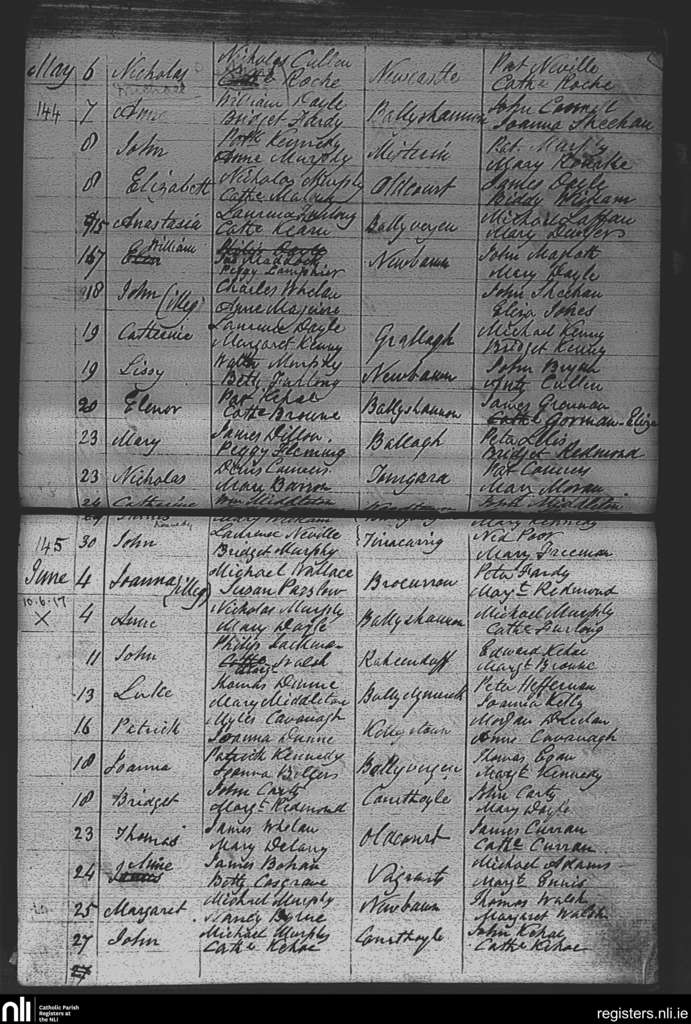 May 6 Nicholas Nicholas Cullen Newcastle Pat Neville
Roche Cathe Roche
144 7 Anne William Doyle Ballyshannon John
Bridget Hardy Joanna Sheehan
8 John Patk Kennedy Pat. Murphy
Anne Murphy Mary Rourke
8 Elizabeth Nicholas Murphy Oldcourt James Doyle
Cathe Biddy
15 Anastasia Laurence Furlong Ballyvergen Michael Laffan
Cathe Kearn Mary
167 William Newbawn John Magrath
Peggy Lamphier Mary Doyle
18 John (illeg) Charles Whelan John Sheehan
Anne Maguire Eliza Jones
19 Catherine Laurence Doyle Grallagh Michael Kenny
Margaret Kenny Bridget Kenny
19 Lissy Walter Murphy Newbawn John Bryan
Betty Furlong Anty Cullen
20 Elenor Pat Kehoe Ballyshannon James Grennan
Cathe Browne Gorman - Eliza
23 Mary James Dillon. Ballagh Peter Lillis
Peggy Fleming Bridget Redmond
23 Nicholas Denis Pat
Mary Barron Mary Moran
24 Catherine Wm Middleton Middleton
Mary Mary Kennedy
Kennedy
145 30 John Laurence Neville Ned Poor
Bridget Murphy Mary Freeman
June 4 Joanna (illeg) Michael Wallace Brocurrow Peter Hardy
Susan Parslow Margt Redmond
10.6.17 4 Anne Nicholas Murphy Ballyshannon Michael Murphy
X Mary Doyle Cathe Furlong
11 John Philip Raheenduff Edward Kehoe
Walsh Margt Browne
13 Luke Thomas Dunne Peter Heffernan
Mary Middleton Joanna Kelly
16 Patrick Myles Cavanagh Kellystown Morgan
Joanna Dunne Anne Cavanagh
18 Joanna Patrick Kennedy Ballyvergen Thomas Egan
Joanna Margt Kennedy
18 Bridget John Carty Courthoyle John Carty
Margt Redmond Mary Doyle
23 Thomas James Whelan Oldcourt James Curran
Mary Delany Cathe Curran
24 Anne James Bohan Vagrants Michael Adams
Betty Cosgrave Margt Ennis
25 Margaret Michael Murphy Newbawn Thomas Walsh
Nancy Byrne Margaret Walsh
27 John Michael Murphy Courthoyle John Kehoe
Cathe Kehoe Cathe Kehoe
27
nli Catholic Parish
Registers at
the NLI
registers.nli.ie